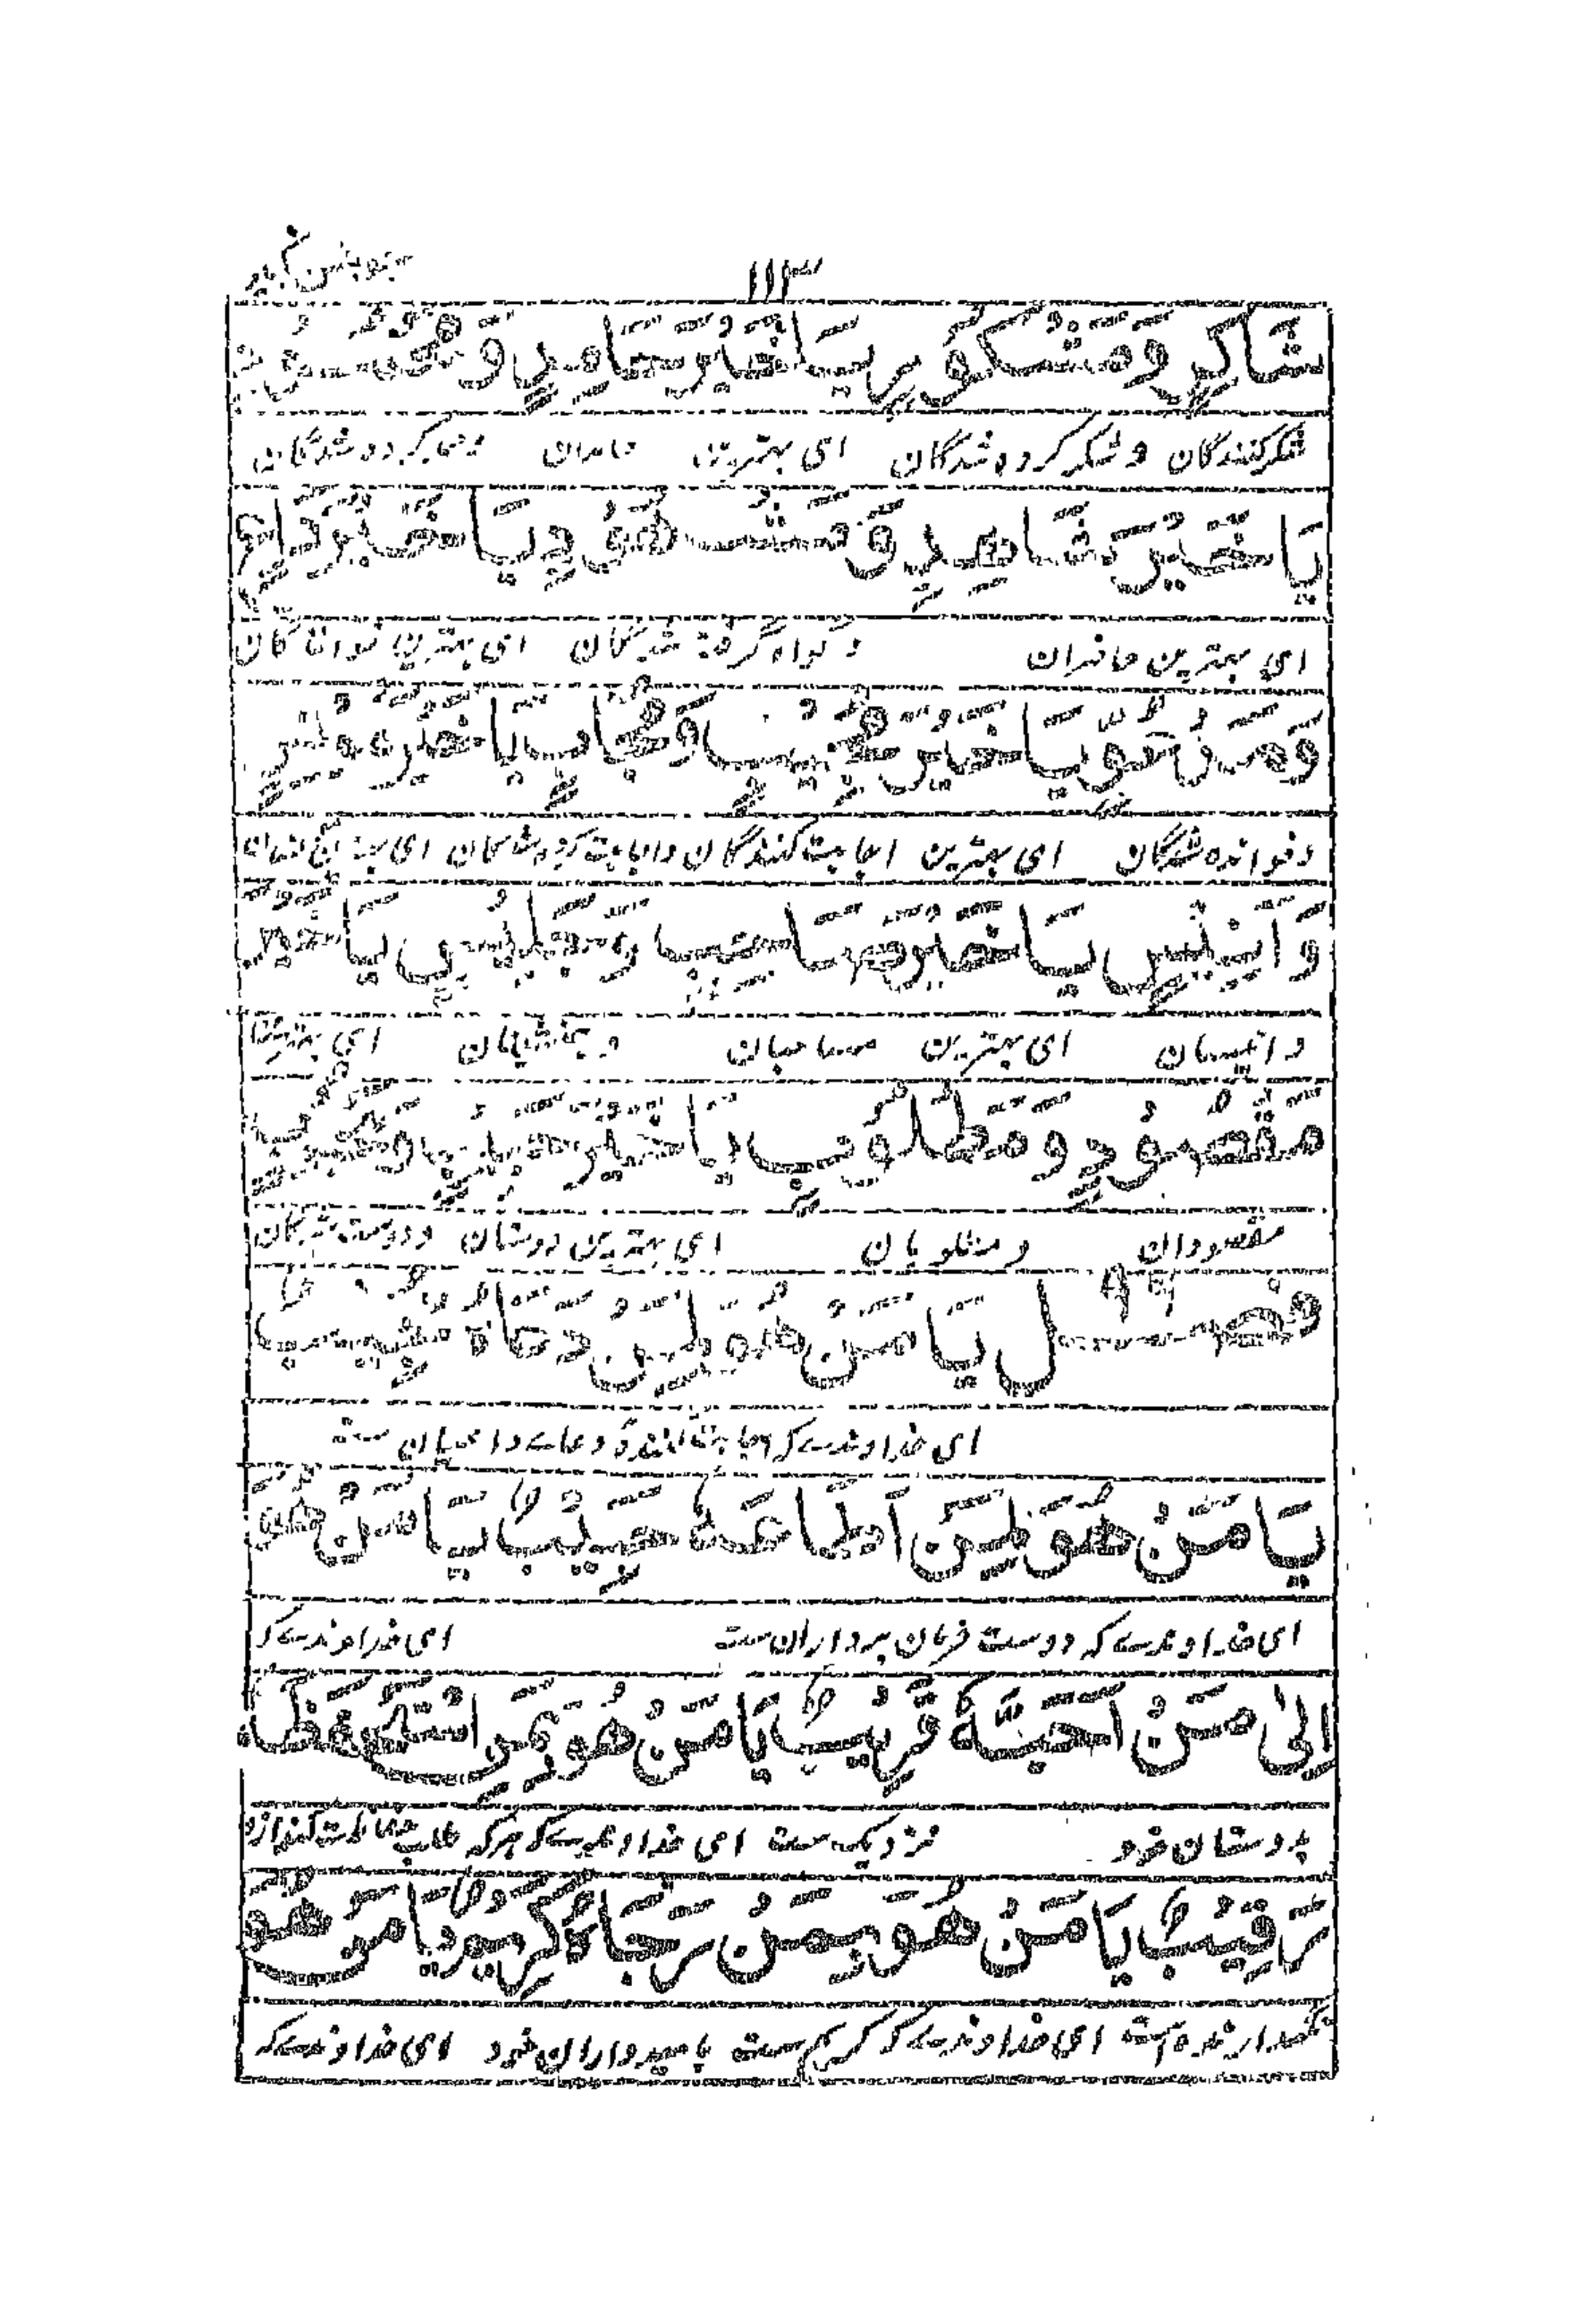 ۱۱۳
جوشن کبیر
شَاكِرٍ وَمَشْكُوْرٍ يَا خَيْرَ حَامِدٍ وَمَحْمُوْدٍ
شکر کنندگان و شکر کرده شدگان ای بهترین حامدان و حمد کرده شدگان
يَا خَيْرَ شَاهِدٍ وَمَشْهُوْدٍ يَا خَيْرَ دَاعٍ
ای بهترین حاضران و گواه گرفته شدگان ای بهترین
وَمَدْعُوٍّ يَا خَيْرَ مُجِيْبٍ وَمُجَابٍ يَا خَيْرَ مُوْنِسٍ
و خوانده شدگان ای بهترین اجابت کنندگان و اجابت کرده شدگان ای بهترین
وَاَنِيْسٍ يَا خَيْرَ صَاحِبٍ وَجَلِيْسٍ يَا خَيْرَ
و انیسان ای بهترین صاحبان و همنشینان ای بهترین
مَقْصُوْدٍ وَمَطْلُوْبٍ يَا خَيْرَ حَبِيْبٍ وَمَحْبُوْبٍ
مقصودان و مطلوبان ای بهترین دوستان و دوست شدگان
فصل يَا مَنْ هُوَ لِمَنْ دَعَاهُ مُجِيْبٌ
ای خداوندے که اجابت کننده دعاے داعیان ست
يَا مَنْ هُوَ لِمَنْ اَطَاعَهُ حَبِيْبٌ يَا مَنْ هُوَ
ای خداوندے که دوست فرمان برداران ست ای خداوندے که
اِلٰى مَنْ اَحَبَّهُ قَرِيْبٌ يَا مَنْ هُوَ بِمَنِ اسْتَحْفَظَهُ
بدوستان خود نزدیک ست ای خداوندے که هرکه طلب حفاظت کند ازو
رَقِيْبٌ يَا مَنْ هُوَ بِمَنْ رَجَاهُ كَرِيْمٌ يَا مَنْ هُوَ
نگهدارنده است ای خداوندے که کریم ست بامیدواران خود ای خداوندے که